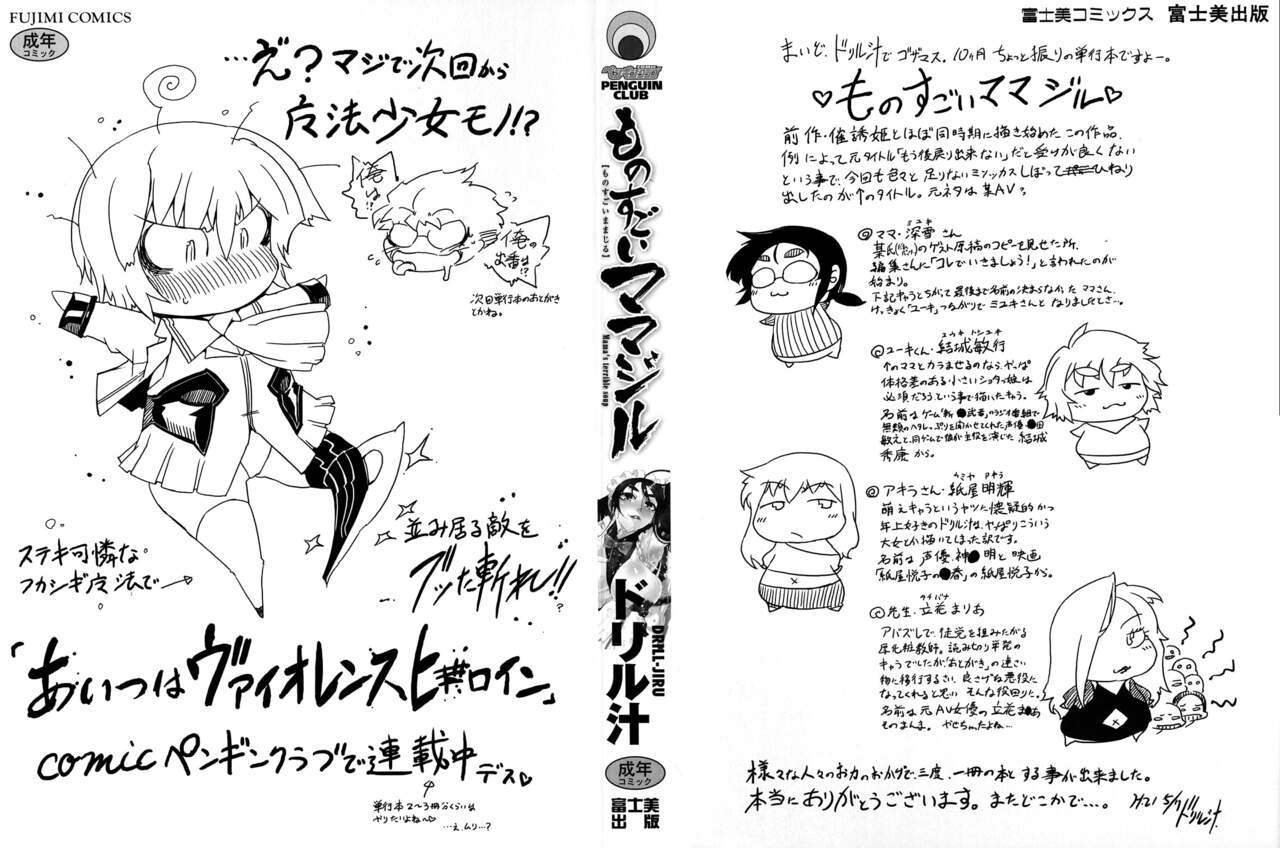 富士美コミックス 富士美出版
まいど、ドリル汁でゴザマス。10ヶ月ちょっと振りの単行本ですよー。
♡ものすごいママジル♡
前作・催誘姫とほぼ同時期に描き始めたこの作品、
例によって元タイトル「もう後戻り出来ない」だと受けが良くない
という事で、今回も色々と足りないミソッカスしぼって
ひねり
出したのが↑のタイトル。元ネタは某AV?
ミユキ
◎ママ・深雪さん
のゲスト原稿のコピーを見せた所、
編集さんに「コレでいきましょう!」と言われたのが
始まり。
下記キャラとちがって最後まで名前の決まらなかったママさん、
けっきょく「ユーキ」つながりでミユキさんとなりましたとさ…。
ユウキ トシユキ
◎ユーキくん・結城敏行
↑のママとカラませるのなら、やっぱ
体格差のある小さいショタっ姫は
必須だろうという事で描いたキャラ。
名前はゲーム「斬●武者」のラジオ番組で
無類のヘタレっぷりを聞かせてくれた声優●田
敏えと、同ゲームで彼が主役を演じた結城
秀康から。
カミヤ アキラ
◎アキラさん・紙屋明輝
萌えキャラというヤツに懐疑的かつ
年上好きのドリル汁は、やっぱりこういう
大女とか描いてしまった訳です。
名前は声優・神●明と映画
「紙屋悦子の●春」の紙屋悦子から。
タチバナ
◎先生・立花まりあ
アバズレで、徒党を組みたがる
厚化粧教師。読み切り単発の
キャラでしたが「あとがき」の連さい
物に移行するさい、良さげな悪役に
なってくれると思い そんな役回りに。
名前は元AV女優の立花ま●あ
そのまんま。やせちゃったよね…
様々な人々のお力のおかげで、三度、一冊の本とする事が出来ました。
本当にありがとうございます。またどこかで…。
H21 5/7 ドリル汁
PENGUIN
CLUB
ものすごいママジル
【ものすごいままじる】
Mama's terrible soup
ドリル汁
DRILL-JIRU
成年
コミック
富士美
出版
FUJIMI COMICS
成年
コミック
…え?マジで次回から
魔法少女モノ!?
俺は!?
俺の
出番は!?
次回単行本のあとがき
とかね。
ステキ可憐な
フカシギ魔法で→
並み居る敵を
ブッた斬れ!!
?
「あいつはヴァイオレンスヒロイン」
comicペンギンクラブで連載中デス♡
単行本2〜3冊分くらいは
ヤリたいよね〜♡
…え、ムリ…?